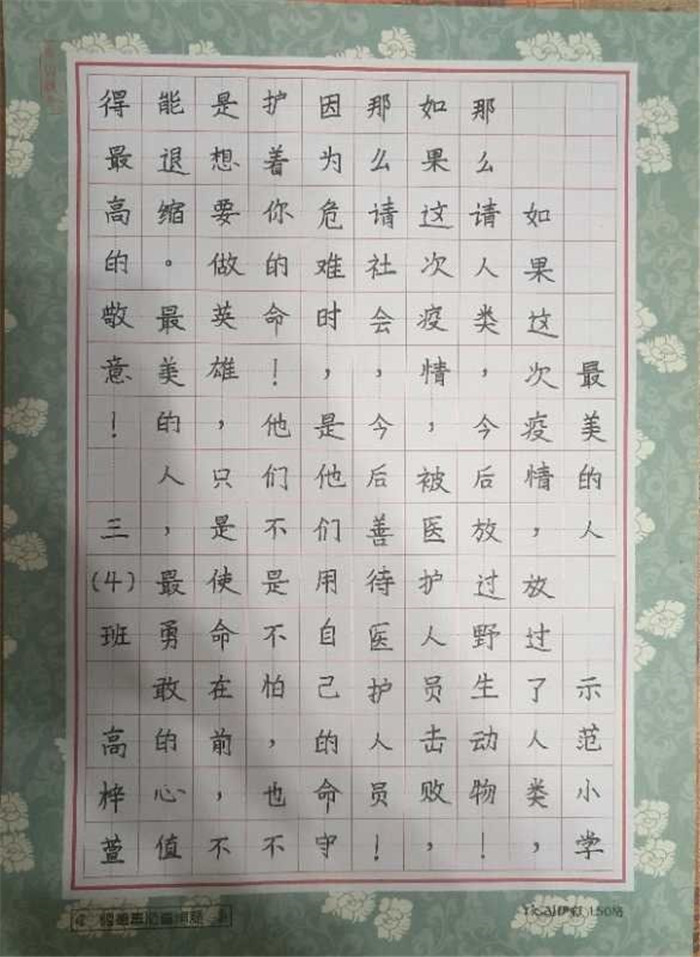 最美的人 示范小学
如果这次疫情，放过了人类，
那么请人类，今后放过野生动物！
如果这次疫情，被医护人员击败，
那么请社会，今后善待医护人员！
因为危难时，是他们用自己的命守
护着你的命！他们不是不怕，也不
是想要做英雄，只是使命在前，不
能退缩。最美的人，最勇敢的心值
得最高的敬意！ 三(4)班 高梓萱
150格